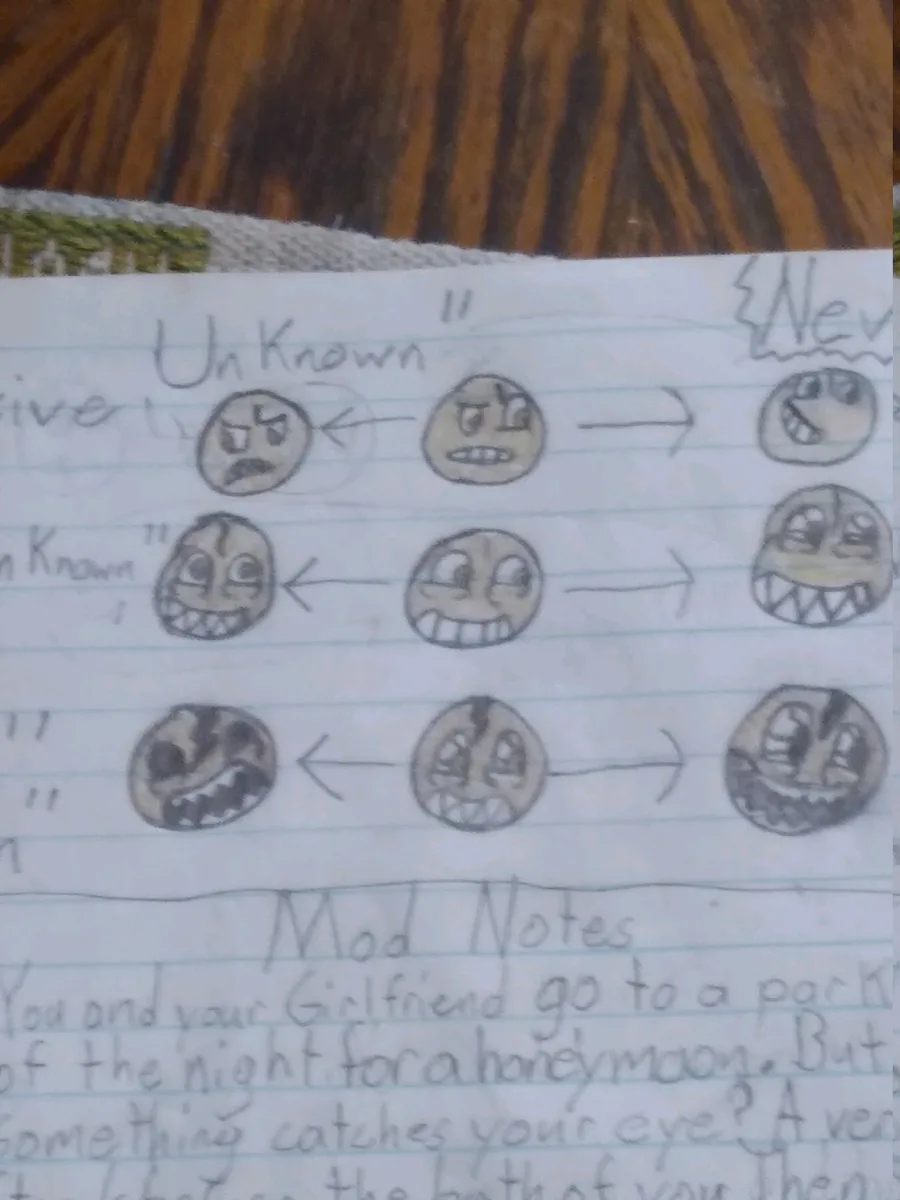 UnKnown"
{Nev
ive
n Known"
"
"
n
Mod Notes
You and your Girlfriend go to a park
of the night for a honeymoon. But
Something catches your eye? A ver
the both of you. Then